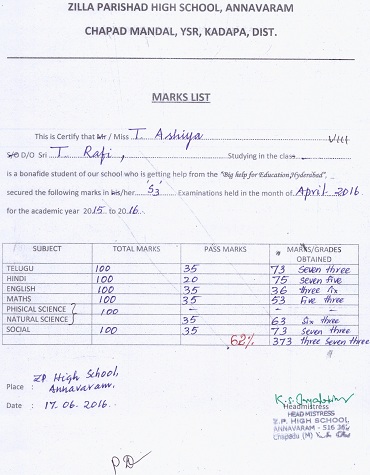 ZILLA PARISHAD HIGH SCHOOL, ANNAVARAM
CHAPAD MANDAL, YSR, KADAPA, DIST.
MARKS LIST
This is Certify that Mr / Miss T. Ashiya
S/O D/O Sri T. Rafi, Studying in the class VIII
is a bonafide student of our school who is getting help from the "Big help for Education,Hyderabad",
secured the following marks in his/her 'S3' Examinations held in the month of April 2016
for the academic year 2015 to 2016.
SUBJECT TOTAL MARKS PASS MARKS MARKS/GRADES OBTAINED
TELUGU 100 35 73 seven three
HINDI 100 20 75 seven five
ENGLISH 100 35 36 three six
MATHS 100 35 53 five three
PHISICAL SCIENCE 100 – –
NATURAL SCIENCE 35 63 six three
SOCIAL 100 35 73 seven three
62% 373 three seven three
Place : ZP High School,
Annavaram.
Date : 17.06.2016.
Headmistress
HEADMISTRESS
Z.P. HIGH SCHOOL
ANNAVARAM - 516
Chapadu (M)